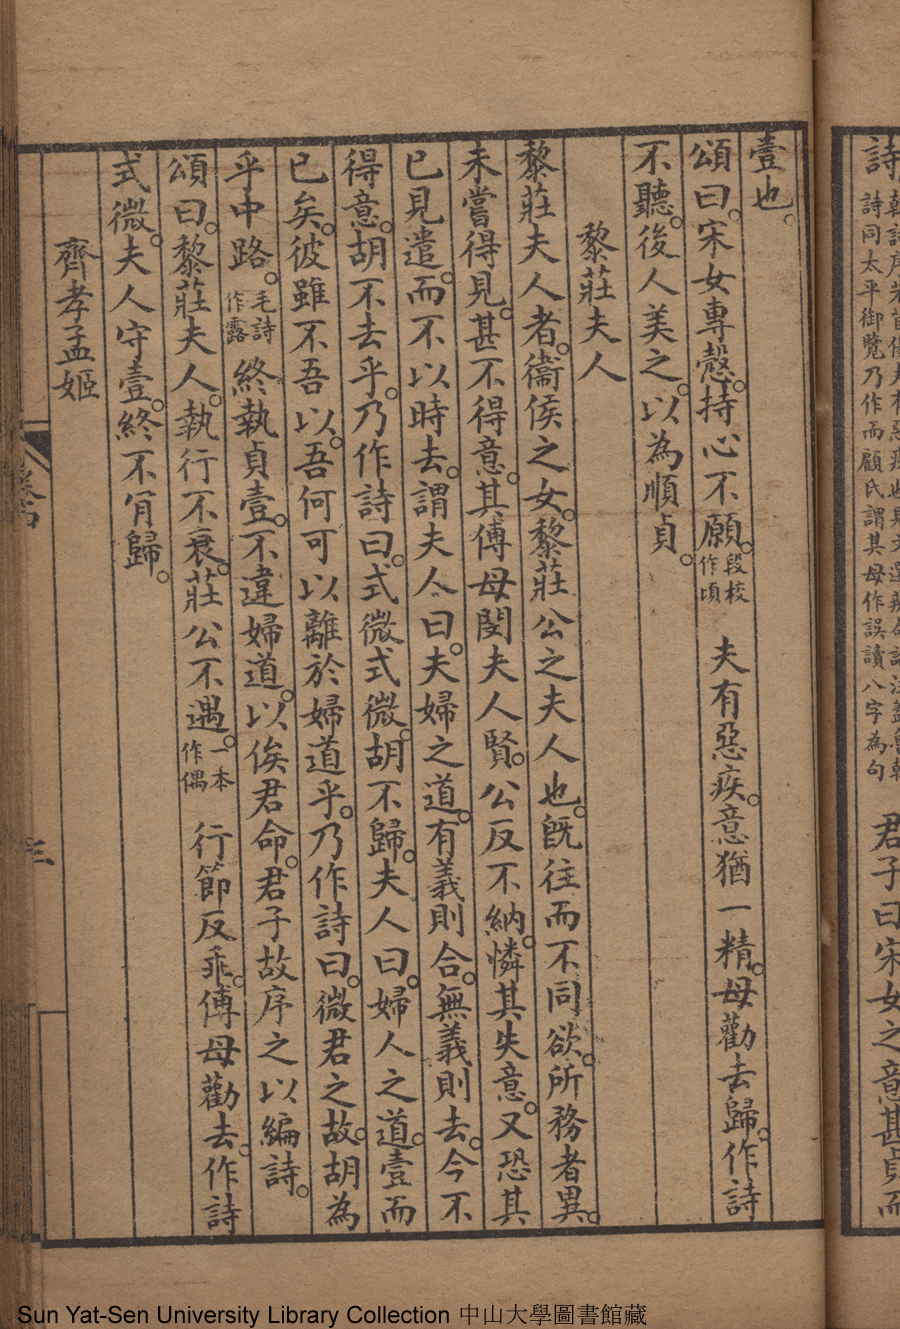 詩
君子曰宋女之意甚貞而
壹也。
頌曰。宋女專愨。持心不願。段校作頃 夫有惡疾。意猶一精。母勸去歸。作詩
不聽。後人美之。以為順貞。
黎莊夫人
黎莊夫人者。衞侯之女。黎莊公之夫人也。旣往而不同欲。所務者異。
未嘗得見。甚不得意。其傅母閔夫人賢。公反不納。憐其失意。又恐其
已見遣。而不以時去。謂夫人曰。夫婦之道。有義則合。無義則去。今不
得意。胡不去乎。乃作詩曰。式微式微。胡不歸。夫人曰。婦人之道。壹而
已矣。彼雖不吾以。吾何可以離於婦道乎。乃作詩曰。微君之故。胡為
乎中路。毛詩作露 終執貞壹。不違婦道。以俟君命。君子故序之以編詩。
頌曰。黎莊夫人。執行不衰。莊公不遇。一本作偶 行節反乖。傅母勸去。作詩
式微。夫人守壹。終不肎歸。
齊孝孟姬
Sun Yat-Sen University Library Collection 中山大學圖書館藏